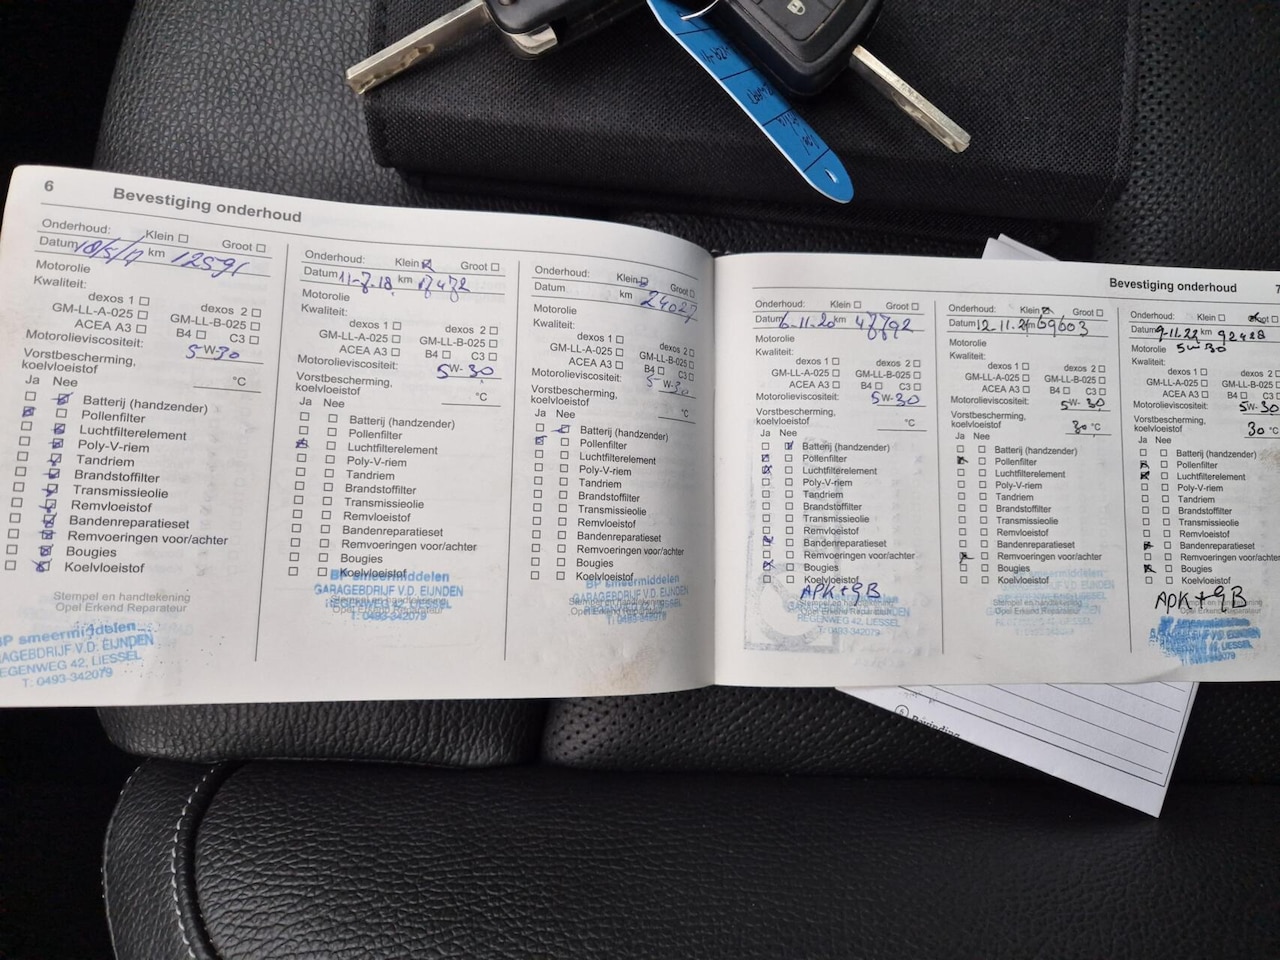 6
Bevestiging onderhoud
Onderhoud: Klein ☐ Groot ☐
Datum 10/5/17 km 12591
Motorolie
Kwaliteit:
dexos 1 ☐ dexos 2 ☐
GM-LL-A-025 ☐ GM-LL-B-025 ☐
ACEA A3 ☐ B4 ☐ C3 ☐
Motorolieviscositeit: 5W-30
Vorstbescherming,
koelvloeistof °C
Ja Nee
Batterij (handzender)
Pollenfilter
Luchtfilterelement
Poly-V-riem
Tandriem
Brandstoffilter
Transmissieolie
Remvloeistof
Bandenreparatieset
Remvoeringen voor/achter
Bougies
Koelvloeistof
Stempel en handtekening
Opel Erkend Reparateur
BP smeermiddelen
GARAGEBEDRIJF V.D. EIJNDEN
HEGENWEG 42, LIESSEL
T: 0493-342079
Onderhoud: Klein ☒ Groot ☐
Datum 11-7.18 km
Motorolie
Kwaliteit:
dexos 1 ☐ dexos 2 ☐
GM-LL-A-025 ☐ GM-LL-B-025 ☐
ACEA A3 ☐ B4 ☐ C3 ☐
Motorolieviscositeit: 5W-30
Vorstbescherming,
koelvloeistof °C
Ja Nee
Batterij (handzender)
Pollenfilter
Luchtfilterelement
Poly-V-riem
Tandriem
Brandstoffilter
Transmissieolie
Remvloeistof
Bandenreparatieset
Remvoeringen voor/achter
Bougies
Koelvloeistof
BP smeermiddelen
GARAGEBEDRIJF V.D. EIJNDEN
Stempel en handtekening
HEGENWEG 42, LIESSEL
Opel Erkend Reparateur
T: 0493-342079
Onderhoud: Klein ☒ Groot ☐
Datum km 24027
Motorolie
Kwaliteit:
dexos 1 ☐ dexos 2 ☐
GM-LL-A-025 ☐ GM-LL-B-025 ☐
ACEA A3 ☐ B4 ☐ C3 ☐
Motorolieviscositeit: 5W-30
Vorstbescherming,
koelvloeistof °C
Ja Nee
Batterij (handzender)
Pollenfilter
Luchtfilterelement
Poly-V-riem
Tandriem
Brandstoffilter
Transmissieolie
Remvloeistof
Bandenreparatieset
Remvoeringen voor/achter
Bougies
Koelvloeistof
BP smeermiddelen
GARAGEBEDRIJF V.D. EIJNDEN
Stempel en handtekening
Opel Erkend Reparateur
T: 0493-342079
Bevestiging onderhoud
7
Onderhoud: Klein ☐ Groot ☐
Datum 6-11.20 km 47792
Motorolie
Kwaliteit:
dexos 1 ☐ dexos 2 ☐
GM-LL-A-025 ☐ GM-LL-B-025 ☐
ACEA A3 ☐ B4 ☐ C3 ☐
Motorolieviscositeit: 5W-30
Vorstbescherming,
koelvloeistof °C
Ja Nee
Batterij (handzender)
Pollenfilter
Luchtfilterelement
Poly-V-riem
Tandriem
Brandstoffilter
Transmissieolie
Remvloeistof
Bandenreparatieset
Remvoeringen voor/achter
Bougies
Koelvloeistof
APK+GB
Stempel en handtekening
Opel Erkend Reparateur
HEGENWEG 42, LIESSEL
T: 0493-342079
Onderhoud: Klein ☒ Groot ☐
Datum 12.11.21 km 69603
Motorolie
Kwaliteit:
dexos 1 ☐ dexos 2 ☐
GM-LL-A-025 ☐ GM-LL-B-025 ☐
ACEA A3 ☐ B4 ☐ C3 ☐
Motorolieviscositeit: 5W-30
Vorstbescherming,
koelvloeistof 30 °C
Ja Nee
Batterij (handzender)
Pollenfilter
Luchtfilterelement
Poly-V-riem
Tandriem
Brandstoffilter
Transmissieolie
Remvloeistof
Bandenreparatieset
Remvoeringen voor/achter
Bougies
Koelvloeistof
Stempel en handtekening
Opel Erkend Reparateur
Onderhoud: Klein ☐ Groot ☒
Datum 9-11.22 km 92428
Motorolie 5W30
Kwaliteit:
dexos 1 ☐ dexos 2 ☐
GM-LL-A-025 ☐ GM-LL-B-025
ACEA A3 ☐ B4 ☐ C3
Motorolieviscositeit: 5W-30
Vorstbescherming,
koelvloeistof 30 °C
Ja Nee
Batterij (handzender)
Pollenfilter
Luchtfilterelement
Poly-V-riem
Tandriem
Brandstoffilter
Transmissieolie
Remvloeistof
Bandenreparatieset
Remvoeringen voor/achter
Bougies
Koelvloeistof
APK+GB